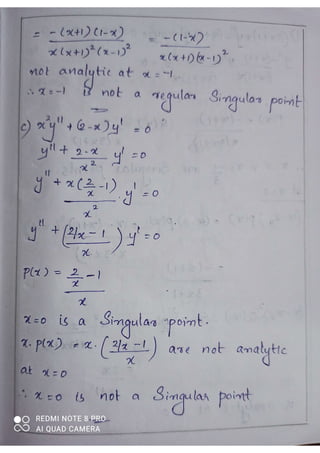 = -(x+1)(1-x) / x(x+1)²(x-1)² = -(1-x) / x(x+1)(x-1)²
not analytic at x = -1
∴ x=-1 is not a regular Singular point
c) x²y'' + (2-x)y' = 0
y'' + 2-x / x² y' = 0
y'' + x(2/x -1) / x² . y' = 0
y'' + (2/x - 1 / x) y' = 0
P(x) = 2/x - 1 / x
x=0 is a Singular point.
x. p(x) = x. (2/x - 1 / x) are not analytic
at x=0
∴ x=0 is not a Singular point
REDMI NOTE 8 PRO
AI QUAD CAMERA